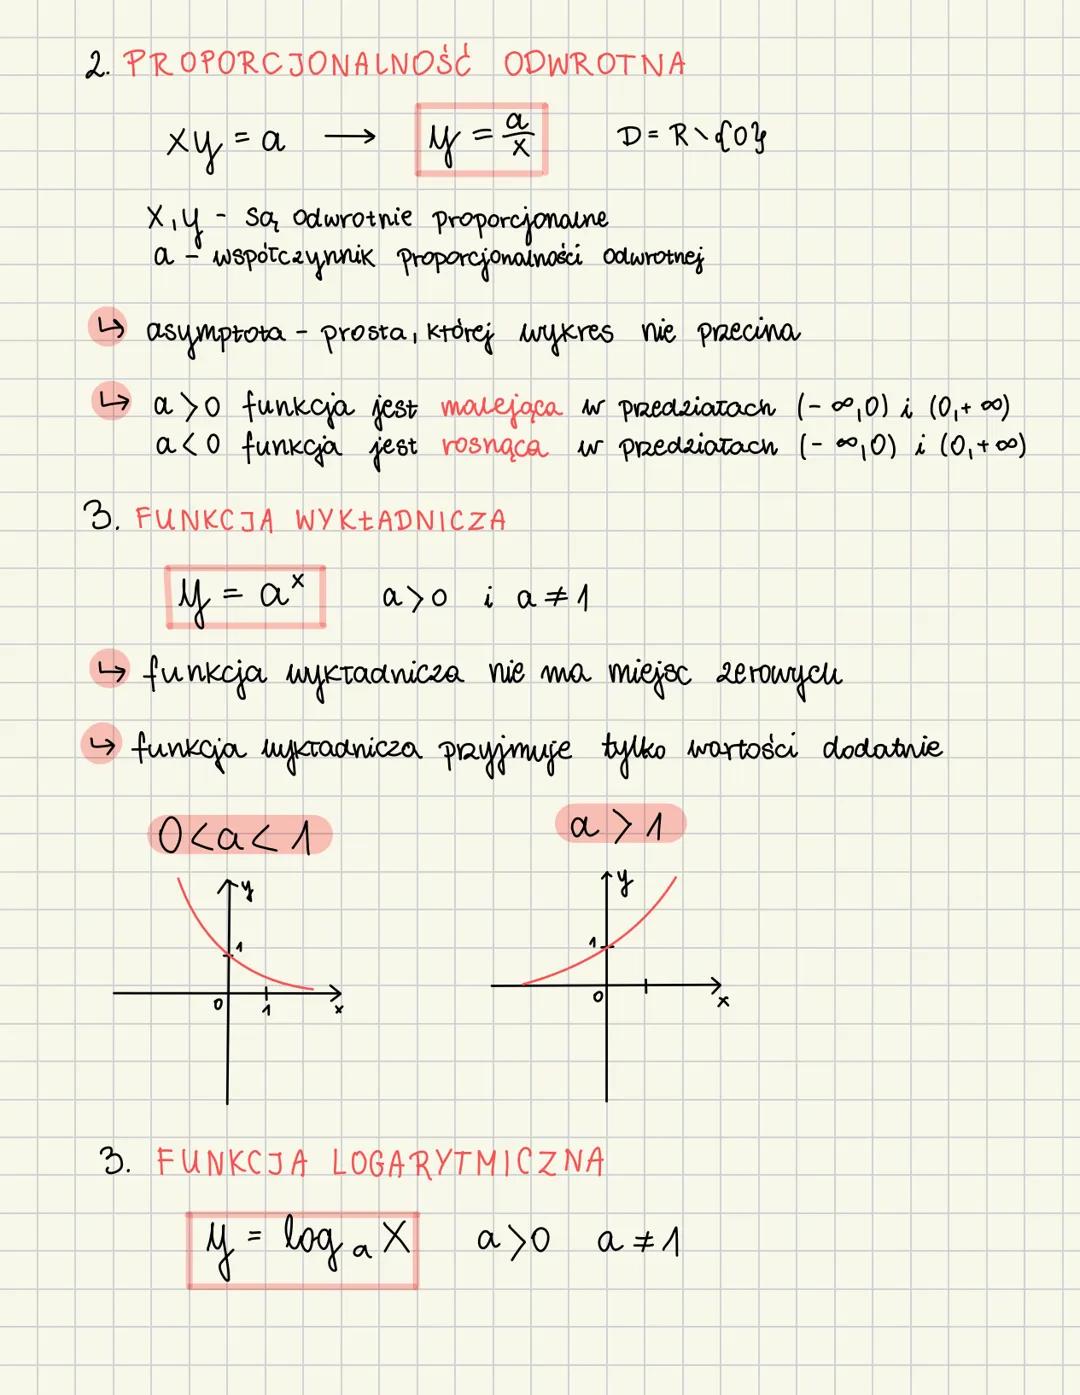 2. PROPORCJONALNOŚĆ ODWROTNA
xy = a → y = a/x D = R \ {0}
x, y - są odwrotnie proporcjonalne
a - współczynnik proporcjonalności odwrotnej
↳ asymptota - prosta, której wykres nie przecina
↳ a > 0 funkcja jest malejąca w przedziałach (- ∞, 0) i (0, + ∞)
a < 0 funkcja jest rosnąca w przedziałach (- ∞, 0) i (0, + ∞)
3. FUNKCJA WYKŁADNICZA
y = aˣ a > 0 i a ≠ 1
↳ funkcja wykładnicza nie ma miejsc zerowych
↳ funkcja wykładnicza przyjmuje tylko wartości dodatnie
0 < a < 1 a > 1
y y
1 1
0 1 x 0 x
3. FUNKCJA LOGARYTMICZNA
y = logₐ x a > 0 a ≠ 1